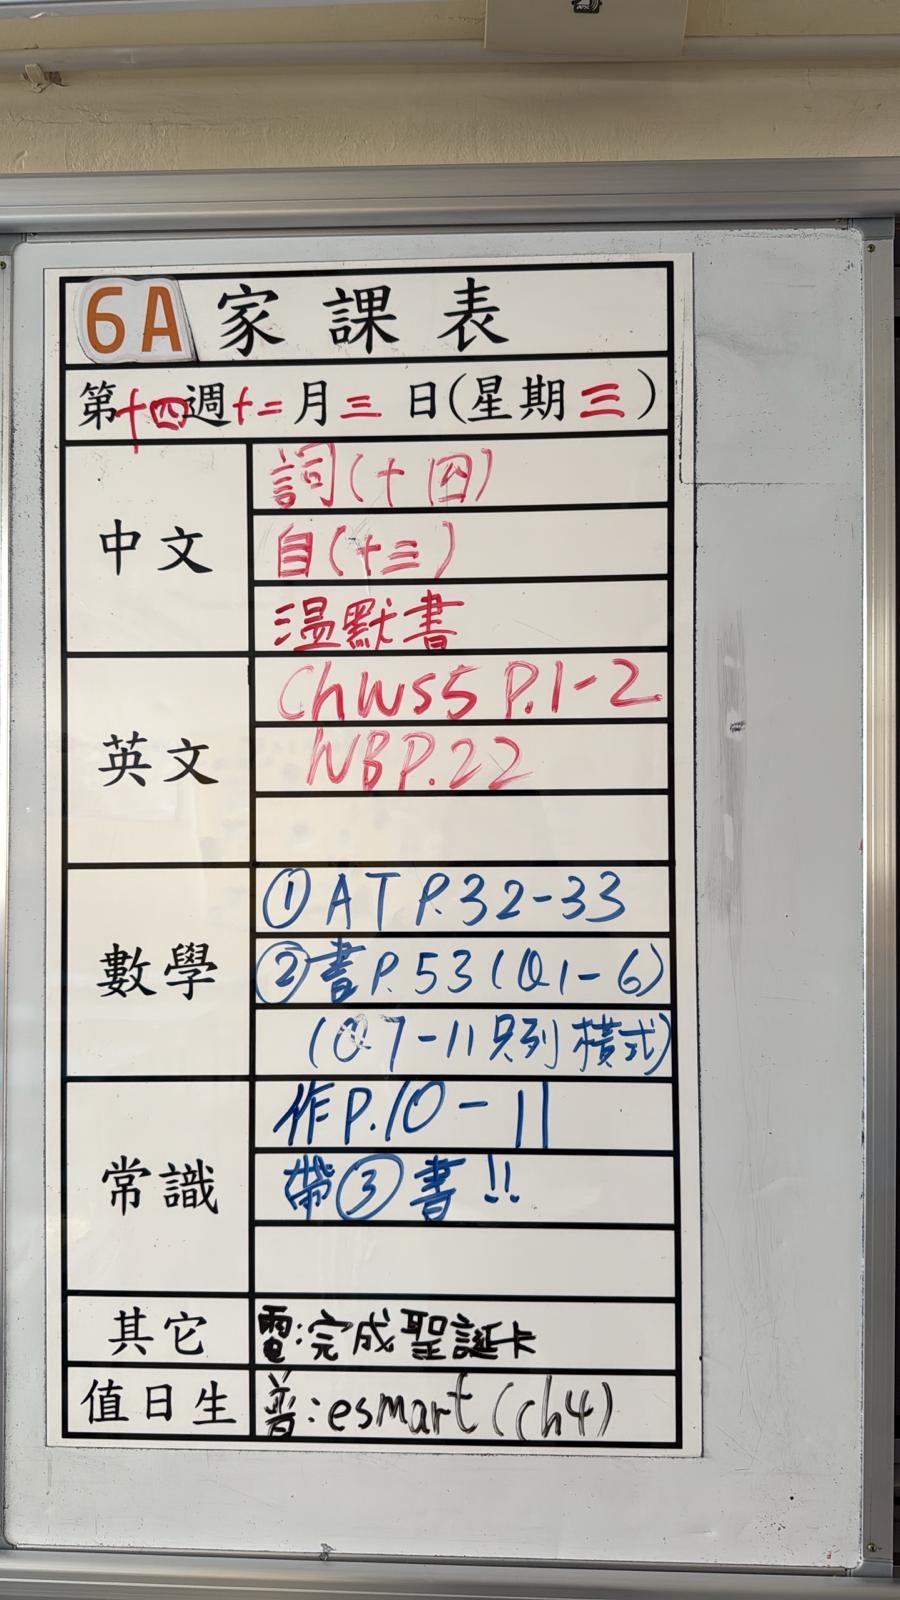 6A 家課表
第十四週十二月三日(星期三)
中文
詞(十四)
自(十三)
溫默書
英文
Ch WS5 P.1-2
WB P.22
數學
①AT P.32-33
②書P.53(Q1-6)
(Q7-11只列橫式)
常識
作P.10-11
帶③書!!
其它
電:完成聖誕卡
值日生
普:esmart(ch4)